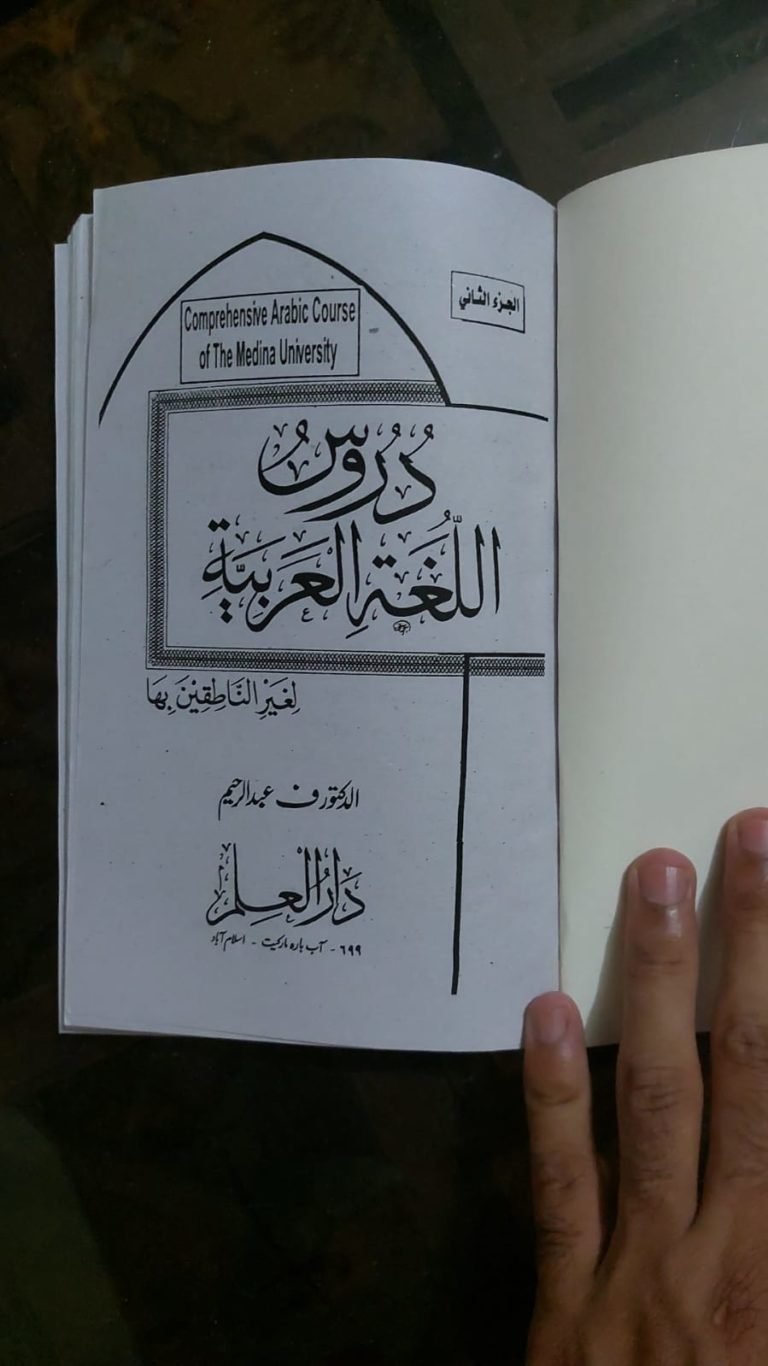 الجزء الثاني
Comprehensive Arabic Course
of The Medina University
دُرُوسُ
اللُّغَةِ الْعَرَبِيَّةِ
لِغَيْرِ النَّاطِقِيْنَ بِهَا
الدكتور ف عبدالرحيم
دَارُ الْعِلْم
٦٩٩ - آب پاره مارکیٹ - اسلام آباد